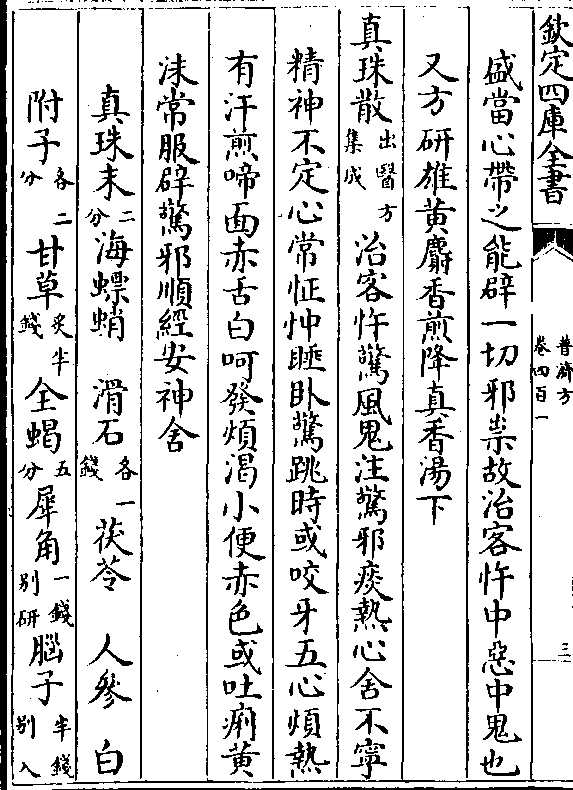 欽定四庫全書
普濟方
卷四百一
三
盛當心帶之能辟一切邪祟故治客忤中惡中鬼也
又方研雄黄麝香煎降真香湯下
真珠散出醫方集成治客忤驚風鬼注驚邪痰熱心舍不寧
精神不定心常怔忡睡卧驚跳時或咬牙五心煩熱
有汗煎啼面赤舌白呵發煩渴小便赤色或吐痢黄
沫常服辟驚邪順經安神舍
真珠末二分海螵蛸 滑石各一錢茯苓 人參 白
附子各二分甘草炙半錢全蝎五分犀角一錢别研腦子半錢别入